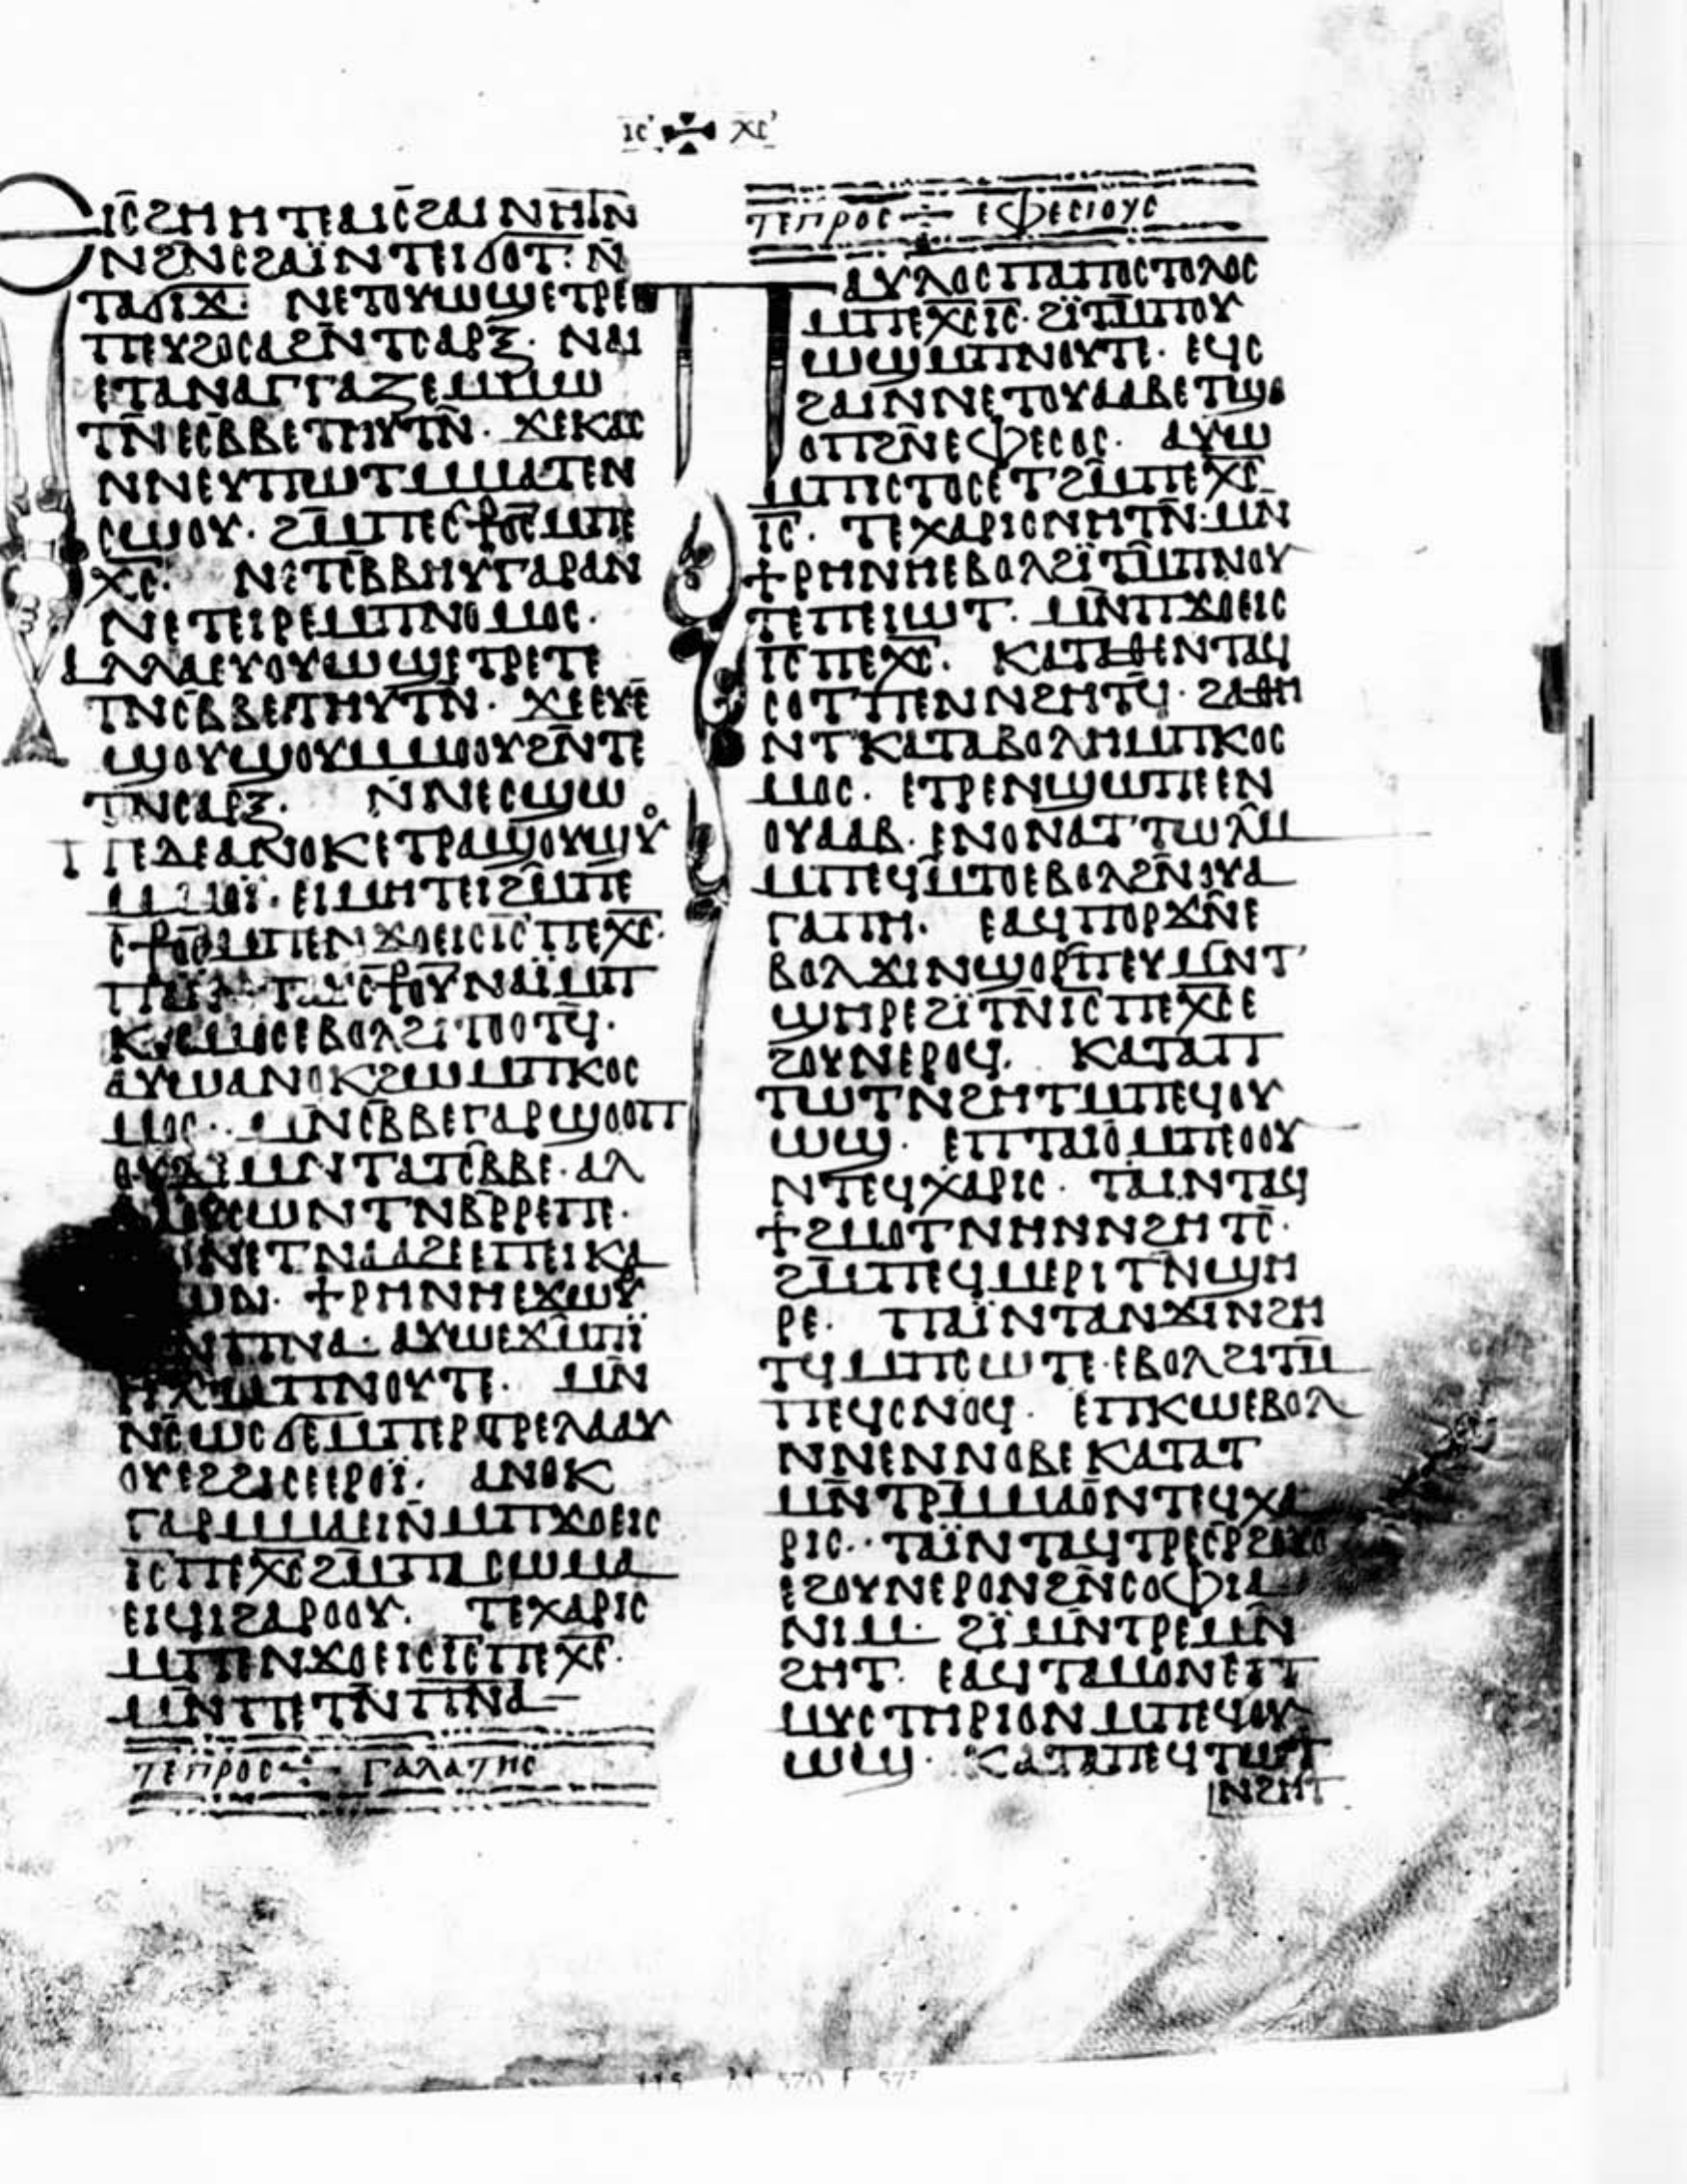 ⲓⲥ̅ ⲭⲥ̅
ⲉⲓⲥϩⲏⲏⲧⲉⲁⲓⲥϩⲁⲓⲛⲏⲧⲛ̅
ⲛϩⲛ̅ⲥϩⲁⲓ̈ⲛⲧⲉⲓϭⲟⲧ· ⲛ̅
ⲧⲁϭⲓϫ· ⲛⲉⲧⲟⲩⲱϣⲉⲧⲣⲉ
ⲡⲉⲩϩⲟⲥⲁϩⲛ̅ⲧⲥⲁⲣⲝ· ⲛⲁⲓ
ⲉⲧⲁⲛⲁⲅⲅⲁⲍⲉⲙⲙⲱ
ⲧⲛ̅ⲉⲥⲃ̅ⲃⲉⲧⲏⲩⲧⲛ̅· ϫⲉⲕⲁⲥ
ⲛⲛⲉⲩⲡⲱⲧⲙⲙⲁⲧⲉⲛ
ⲥⲱⲟⲩ· ϩⲙ̅ⲡⲉⲥⳁⲟⲥ̅ⲙⲡⲉ
ⲭⲥ̅· ⲛⲉⲧⲥⲃ̅ⲃⲏⲩⲅⲁⲣⲁⲛ
ⲛⲉⲧⲉⲓⲣⲉⲙⲡⲛⲟⲙⲟⲥ·
ⲁⲗⲗⲁⲉⲩⲟⲩⲱϣⲉⲧⲣⲉⲧⲉ
ⲧⲛⲥⲃ̅ⲃⲉⲧⲏⲩⲧⲛ̅· ϫⲉⲉⲩⲉ
ϣⲟⲩϣⲟⲩⲙⲙⲟⲟⲩϩⲛ̅ⲧⲉ
ⲧⲛⲥⲁⲣⲝ· ⲛ̅ⲛⲉⲥϣⲱ
ⲡⲉⲇⲉⲁⲛⲟⲕⲉⲧⲣⲁϣⲟⲩϣⲟⲩ
ⲙⲙⲟⲓ̈· ⲉⲓⲙⲏⲧⲉⲓϩⲙ̅ⲡⲉ
ⲥⳁⲟⲥ̅ⲙⲡⲉⲛϫⲟⲉⲓⲥⲓⲥ̅ⲡⲉⲭⲥ̅·
ⲡⲁⲓ̈ⲛⲧⲁⲩⲥⳁⲟⲩ̅ⲛⲁⲓ̈ⲙⲡ
ⲕⲟⲥⲙⲟⲥⲉⲃⲟⲗϩⲓⲧⲟⲟⲧϥ̅·
ⲁⲩⲱⲁⲛⲟⲕϩⲱⲙⲡⲕⲟⲥ
ⲙⲟⲥ· ⲙⲛ̅ⲥⲃ̅ⲃⲉⲅⲁⲣϣⲟⲟⲡ
ⲟⲩⲇⲉⲙⲛⲧⲁⲧⲥⲃ̅ⲃⲉ· ⲁⲗ
ⲗⲁⲟⲩⲥⲱⲛⲧⲛⲃⲣ̅ⲣⲉⲡⲉ·
ⲛⲉⲧⲛⲁⲁϩⲉⲉⲡⲉⲓⲕⲁ
ⲛⲱⲛ· ϯⲣⲏⲛⲏⲉϫⲱⲟⲩ
ⲙⲛⲡⲛⲁ· ⲁⲩⲱⲉϫⲙ̅ⲡⲓ̈
ⲏⲗ̅ⲙⲡⲛⲟⲩⲧⲉ· ⲙⲛ̅
ⲛⲥⲱⲥϭⲉⲙⲡⲉⲣⲧⲣⲉⲗⲁⲁⲩ
ⲟⲩⲉϩϩⲓⲥⲉⲉⲣⲟⲓ̈· ⲁⲛⲟⲕ
ⲅⲁⲣⲙⲙⲁⲉⲓⲛ̅ⲙⲡϫⲟⲉⲓⲥ
ⲓⲥ̅ⲡⲉⲭⲥ̅ϩⲙ̅ⲡⲁⲥⲱⲙⲁ
ⲉⲓϥⲓϩⲁⲣⲟⲟⲩ· ⲧⲉⲭⲁⲣⲓⲥ
ⲙⲡⲉⲛϫⲟⲉⲓⲥⲓⲥ̅ⲡⲉⲭⲥ̅·
ⲙⲛ̅ⲡⲉⲧⲛ̅ⲡⲛⲁ̅
ⲧⲉⲡⲣⲟⲥ ÷ ⲅⲁⲗⲁⲧⲏⲥ
ⲧⲉⲡⲣⲟⲥ ÷ ⲉⲫⲉⲥⲓⲟⲩⲥ
ⲡⲁⲩⲗⲟⲥⲡⲁⲡⲟⲥⲧⲟⲗⲟⲥ
ⲙⲡⲉⲭⲥ̅ⲓⲥ̅· ϩⲓ̈ⲧⲙ̅ⲡⲟⲩ
ⲱϣⲙⲡⲛⲟⲩⲧⲉ· ⲉϥⲥ
ϩⲁⲓⲛⲛⲉⲧⲟⲩⲁⲁⲃⲉⲧϣⲟ
ⲟⲡϩⲛ̅ⲉⲫⲉⲥⲟⲥ· ⲁⲩⲱ
ⲙⲡⲓⲥⲧⲟⲥⲉⲧϩⲙ̅ⲡⲉⲭⲥ̅
ⲓⲥ̅· ⲧⲉⲭⲁⲣⲓⲥⲛⲏⲧⲛ̅· ⲙⲛ
ϯⲣⲏⲛⲏⲉⲃⲟⲗϩⲓ̈ⲧⲙ̅ⲡⲛⲟⲩ
ⲧⲉⲡⲉⲓⲱⲧ· ⲙⲛ̅ⲡϫⲟⲉⲓⲥ
ⲓⲥ̅ⲡⲉⲭⲥ̅· ⲕⲁⲧⲁⲑⲉⲛⲧⲁϥ
ⲥⲟⲧⲡⲉⲛⲛϩⲏⲧϥ̅· ϩⲁⲑⲏ
ⲛⲧⲕⲁⲧⲁⲃⲟⲗⲏⲙⲡⲕⲟⲥ
ⲙⲟⲥ· ⲉⲧⲣⲉⲛϣⲱⲡⲉⲉⲛ
ⲟⲩⲁⲁⲃ· ⲉⲛⲟⲛⲁⲧⲧⲱⲗⲙ̅
ⲙⲡⲉϥⲙ̅ⲧⲟⲉⲃⲟⲗϩⲛ̅ⲟⲩⲁ
ⲅⲁⲡⲏ· ⲉⲁϥⲡⲟⲣϫⲛ̅ⲉ
ⲃⲟⲗϫⲓⲛϣⲟⲣⲡ̅ⲉⲩⲙⲛ̅ⲧ
ϣⲏⲣⲉϩⲓ̈ⲧⲛ̅ⲓⲥ̅ⲡⲉⲭⲥ̅ⲉ
ϩⲟⲩⲛⲉⲣⲟϥ· ⲕⲁⲧⲁⲡ
ⲧⲱⲧⲛϩⲏⲧⲙⲡⲉϥⲟⲩ
ⲱϣ· ⲉⲡⲧⲁⲓⲟⲙⲡⲉⲟⲟⲩ
ⲛⲧⲉϥⲭⲁⲣⲓⲥ· ⲧⲁⲓⲛⲧⲁϥ
ϯϩⲙⲟⲧⲛⲏⲛⲛϩⲏⲧⲥ̅·
ϩⲙ̅ⲡⲉϥⲙⲉⲣⲓⲧⲛϣⲏ
ⲣⲉ· ⲡⲁⲓ̈ⲛⲧⲁⲛϫⲓⲛϩⲏ
ⲧϥⲙⲡⲥⲱⲧⲉ· ⲉⲃⲟⲗϩⲓⲧⲙ̅
ⲡⲉϥⲥⲛⲟϥ· ⲉⲡⲕⲱⲉⲃⲟⲗ
ⲛⲛⲉⲛⲛⲟⲃⲉⲕⲁⲧⲁⲧ
ⲙⲛ̅ⲧⲣⲙ̅ⲙⲁⲟⲛⲧⲉϥⲭⲁ
ⲣⲓⲥ· ⲧⲁⲓ̈ⲛⲧⲁϥⲧⲣⲉⲥⲣ̅ϩⲟⲩⲟ
ⲉϩⲟⲩⲛⲉⲣⲟⲛϩⲛ̅ⲥⲟⲫⲓⲁ
ⲛⲓⲙ· ϩⲓ̈ⲙⲛ̅ⲧⲣⲉⲙⲛ̅
ϩⲏⲧ· ⲉⲁϥⲧⲁⲙⲟⲛⲉⲡ
ⲙⲩⲥⲧⲏⲣⲓⲟⲛⲙⲡⲉϥⲟⲩ
ⲱϣ· ⲕⲁⲧⲁⲡⲉϥⲧⲱⲧ
ⲛϩⲏⲧ